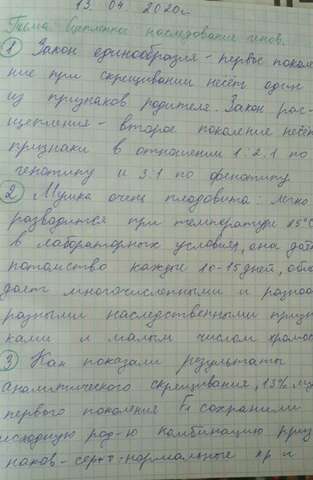 13. 04. 2020г
Тема: Сцепленное наследование генов.
① Закон единообразия - первое поколе
ние при скрещивании несёт один
из признаков родителя. Закон рас-
щепления - второе поколение несёт
признаки в отношении 1:2:1 по
генотипу и 3:1 по фенотипу
② Мушка очень плодовита: легко
разводится при температуре 25°С
в лабораторных условиях, она даёт
потомство каждые 10-15 дней, обла
дает многочисленными и разноо
разными наследственными призн
ками и малым числом хромос
③ Как показали результаты
анализического скрещивания, 83% мух
первого поколения F₁ сохранили
исходную род-ю комбинацию приз
наков - сер+т-нормальные кр и